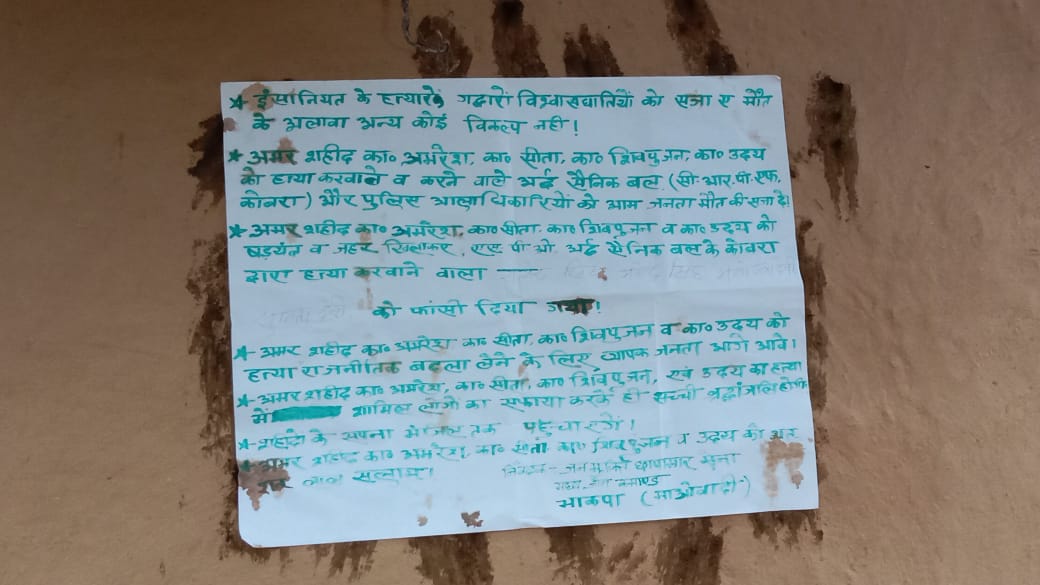 ★ इंसानियत के हत्यारों गद्दारों विश्वासघातियों को सजा ए मौत
के अलावा अन्य कोई विकल्प नही!
★ अमर शहीद का० अमरेश, का० सीता, का० शिवपुजन, का० उदय
को हत्या करवाले व करने वाले अर्द्ध सैनिक बल (सी.आर.पी.एफ.
कोबरा) और पुलिस आलाधिकारियों को आम जनता मौत की सजा दें!
★ अमर शहीद का० अमरेश, का० सीता, का० शिवपुजन व का० उदय को
षड्यंत्र व जहर खिलाकर, एस पी ओ अर्द्ध सैनिक बल के कोबरा
द्वारा हत्या करवाने वाला
को फांसी दिया गया!
★ अमर शहीद का० अमरेश, का० सीता, का० शिवपुजन व का० उदय को
हत्या राजनीतिक बदला लेने के लिए व्यापक जनता आगे आवें।
★ अमर शहीद का० अमरेश, का० सीता, का० शिवपुजन, एवं उदय का हत्या
में शामिल लोगों का सफाया करके ही सच्ची श्रद्धांजलि होगी
★ शहीदों के सपना मंजिल तक पहुंचाएंगें!
★ अमर शहीद का० अमरेश, का० सीता, का० शिवपुजन व उदय को
लाल सलाम!
निवेदक - जनमुक्ति छापामार सेना
भाकपा (माओवादी)